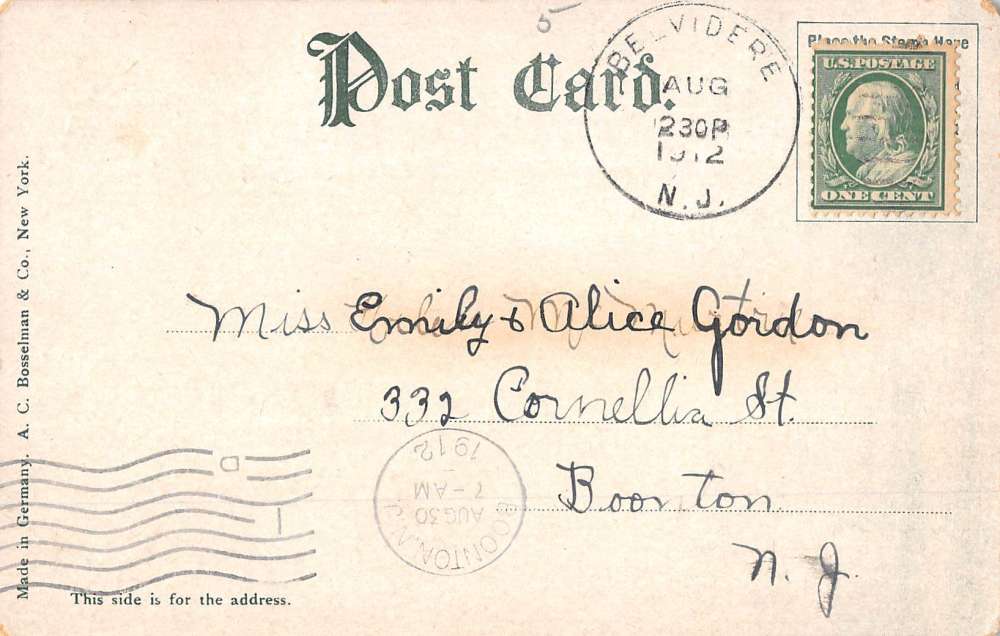 5
Post Card.
Place the Stamp Here
BELVIDERE
AUG
230P
1912
N.J.
U.S. POSTAGE
ONE CENT
Miss Emily & Alice Gordon
332 Cornellia St.
Boonton
N. J.
BOONTON, N.J.
AUG 30
7-AM
1912
D
1
Made in Germany. A. C. Bosselman & Co., New York.
This side is for the address.